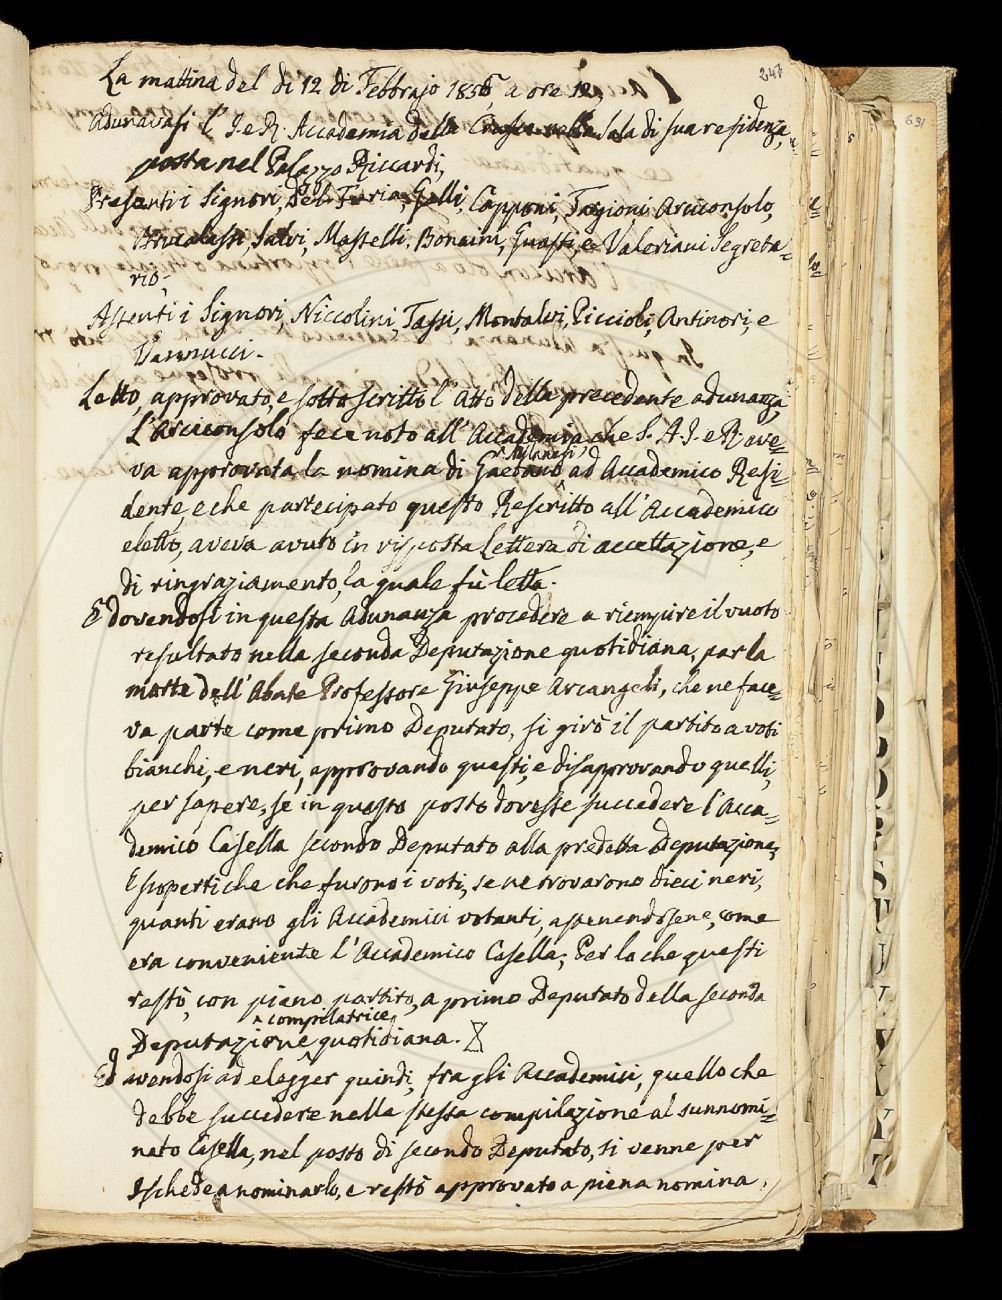 247
La mattina del dì 12 di Febbrajo 1856 a ore 12,
Adunavasi l' I. e R. Accademia della Crusca nella sala di sua residenza,
posta nel Palazzo Riccardi,
Presenti i Signori, Del-Furia, Gelli, Capponi, Targioni Arciconsolo,
Brucalassi, Salvi, Mastelli, Bonaini, Guasti, e Valeriani Segreta=
rio;
Assenti i Signori, Niccolini, Tassi, Montalvi, Piccioli, Antinori, e
Vannucci.
Letto, approvato, e sottoscritto l'Atto della precedente adunanza,
L'Arciconsolo fece noto all'Accademia che S. A. I. e R. ave=
Milanesi,
va approvata la nomina di Gaetano ad Accademico Resi=
dente, e che partecipato questo Rescritto all'Accademico
eletto, aveva avuto in risposta Lettera di accettazione, e
di ringraziamento, la quale fù letta.
E dovendosi in questa Adunanza procedere a riempire il vuoto
resultato nella seconda Deputazione quotidiana, par la
morte dell'Abate Professore Giuseppe Arcangeli, che ne face=
va parte come primo Deputato, si girò il partito a voti
bianchi, e neri, approvando questi, e disapprovando quelli,
per sapere, se in questo posto dovesse succedere l'Acca=
demico Casella secondo Deputato alla predetta Deputazione,
E scoperti che che furono i voti, se ne trovarono dieci neri,
quanti erano gli Accademici votanti, astenendosene, come
era conveniente l'Accademico Casella; Per lo che questi
restò, con pieno partito, a primo Deputato della seconda
compilatrice
Deputazione quotidiana.
Ed avendosi ad elegger quindi, fra gli Accademici, quello che
debbe succedere nella stessa compilazione al sunnomi=
nato Casella, nel posto di secondo Deputato, si venne per
Ischede a nominarlo, e restò approvato a piena nomina,
691